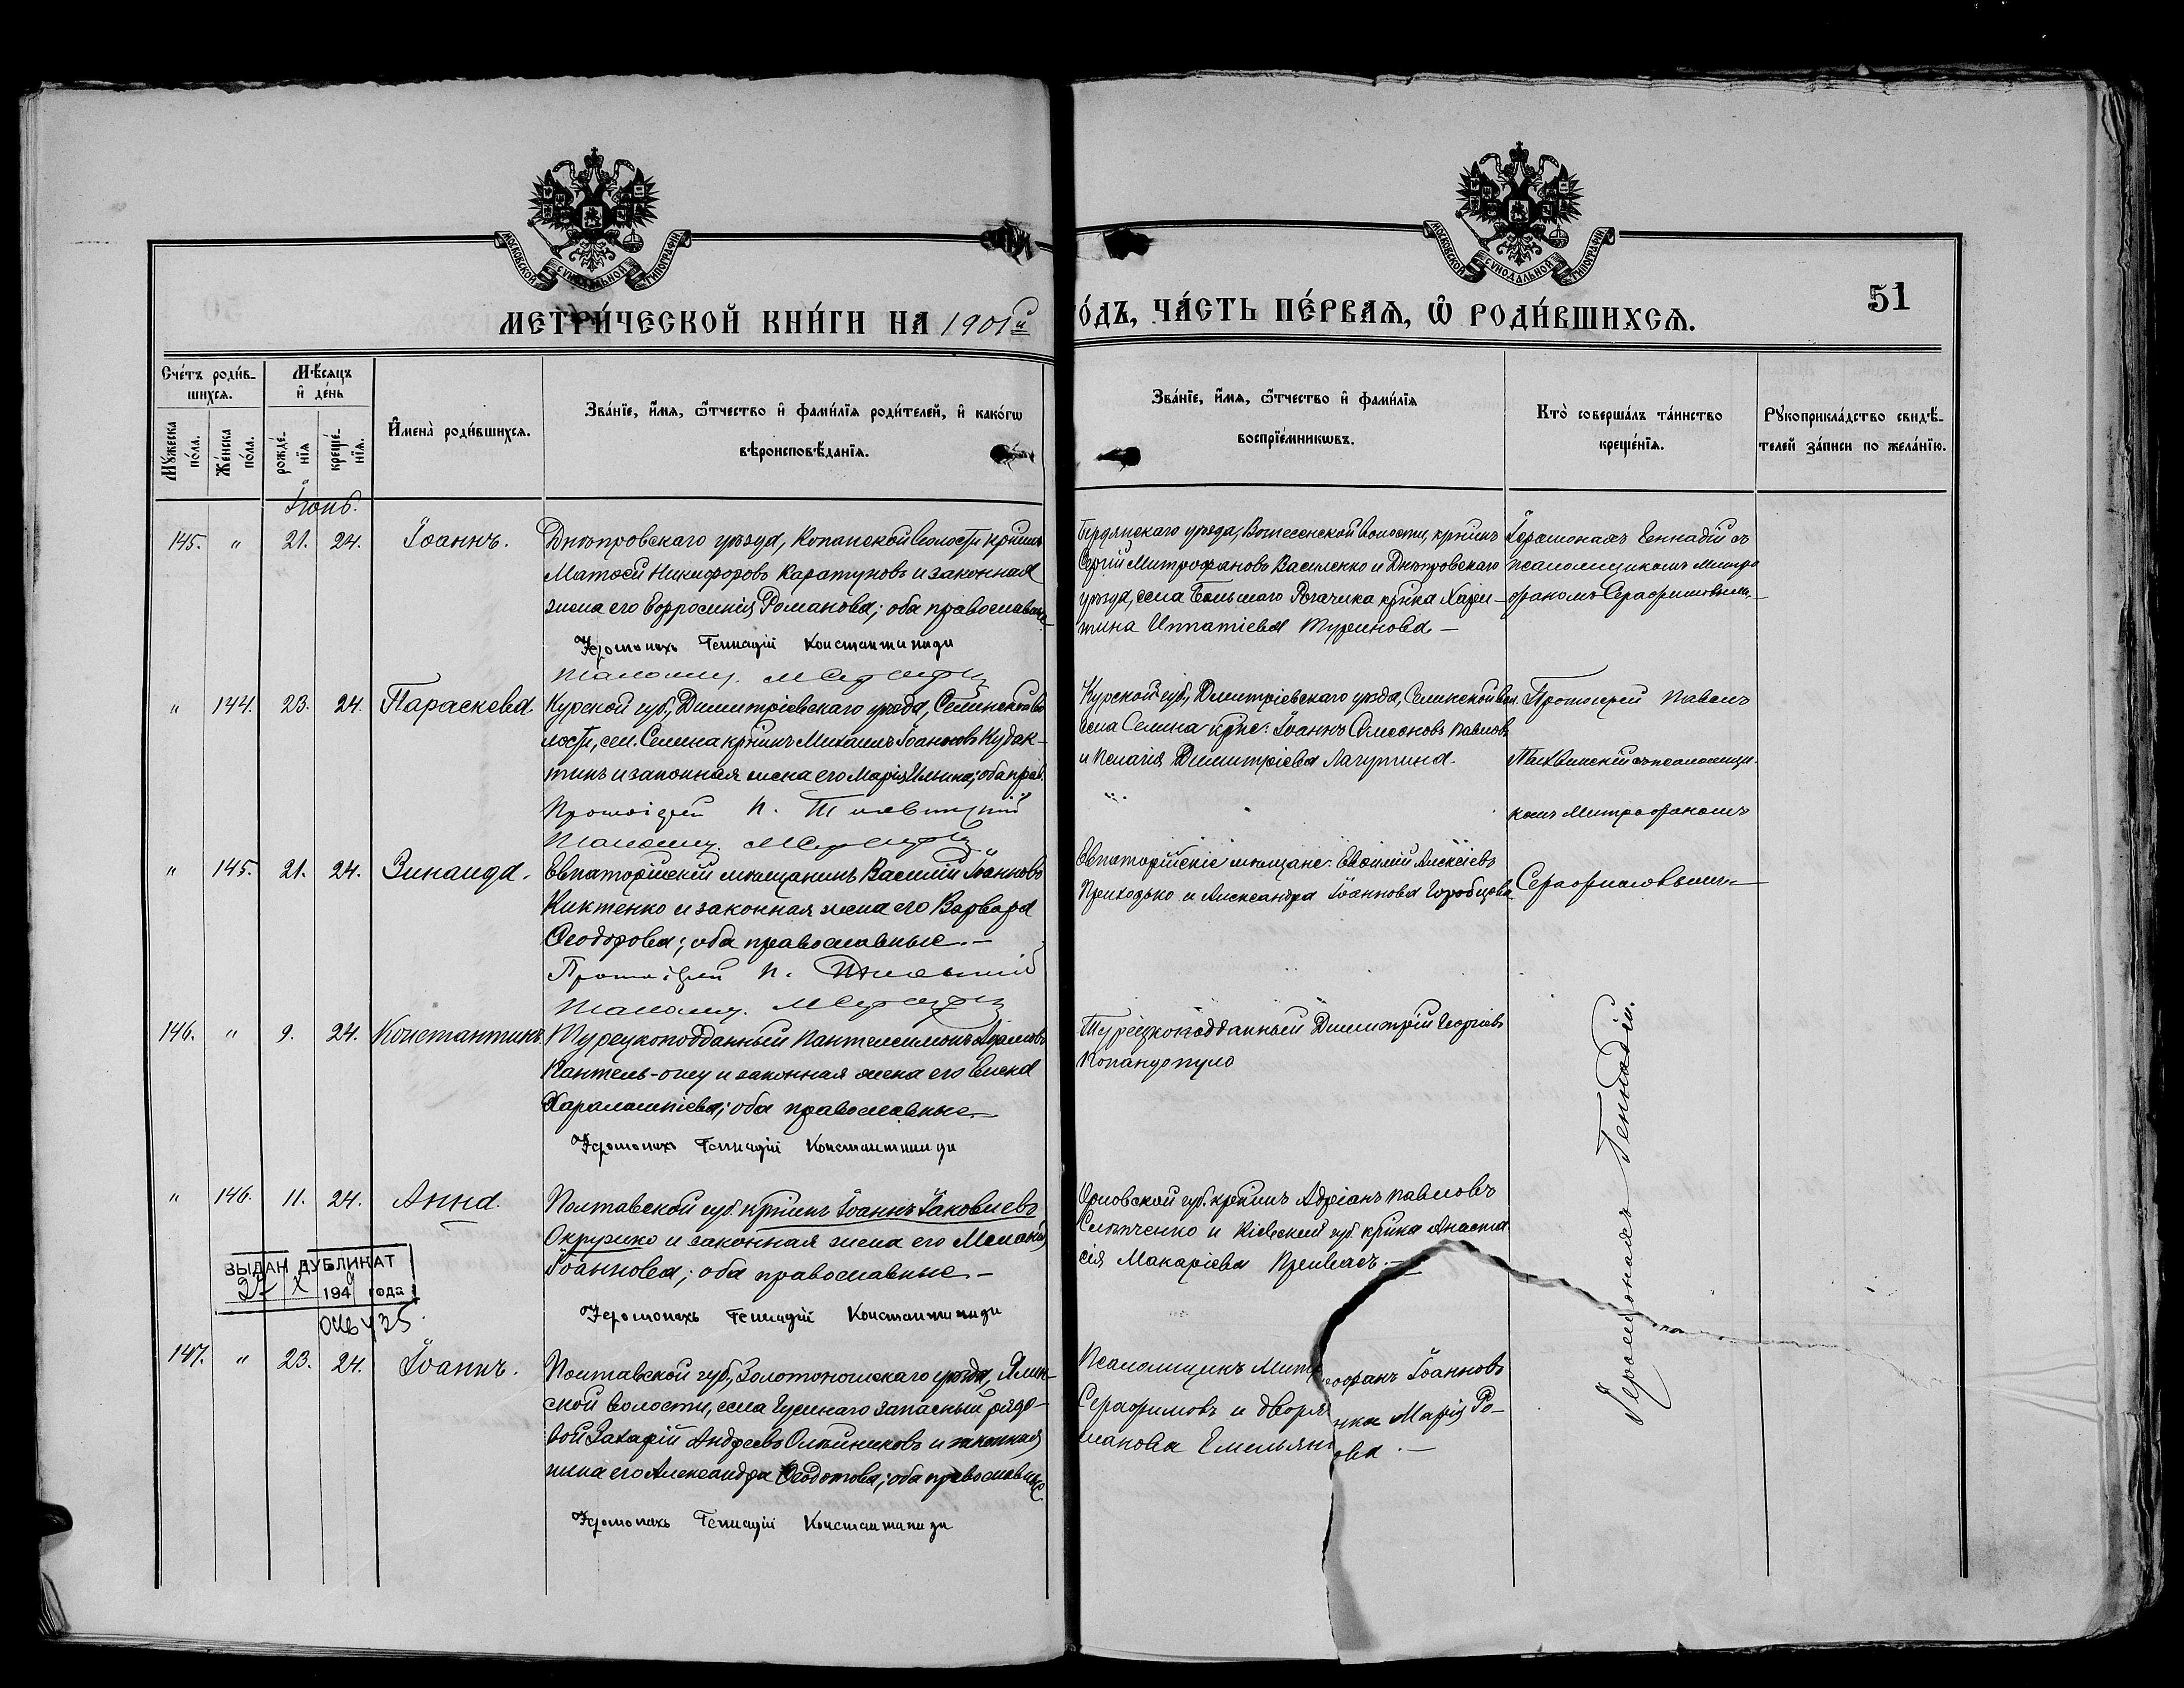 МОСКОВСКОЙ СѴНОДАЛЬНОЙ ТИПОГРАФІИ
МОСКОВСКОЙ СѴНОДАЛЬНОЙ ТИПОГРАФІИ
51
МЕТРИ́ЧЕСКОЙ КНИ́ГИ НА 1901й
ГО́ДЪ, ЧА́СТЬ ПЕ́РВАѦ, Ѡ҆ РОДИ́ВШИХСѦ.
Сче́тъ роди́в-
шихсѧ.
Мꙋ́жеска по́ла.
Же́нска по́ла.
Мѣ́сѧцъ
и҆ де́нь
рожде́-
нїѧ
креще́-
нїѧ.
И҆мена̀ роди́вшихсѧ.
Зва́нїе, и҆́мѧ, ѻ҆́тчество и҆ фами́лїѧ роди́телей, и҆ како́гѡ
вѣроисповѣ́данїѧ.
Зва́нїе, и҆́мѧ, ѻ҆́тчество и҆ фами́лїѧ
воспрїе́мникѡвъ.
Кто̀ соверша́лъ та́инство
креще́нїѧ.
Рꙋкоприкла́дство свидѣ́-
телей за́писи по жела́нїю.
Іюнь.
145. " 21. 24. Іоаннъ.
Днѣпровскаго уѣзда, Копанской волости крнинъ
Матѳей Никифоровъ Каратуновъ и законная
жена его Евфросинія Романова; оба православные
Іеромонахъ Геннадій Константиниди
Псаломщ.
Бердянскаго уѣзда, Вознесенской волости, крнинъ
Сергій Митрофановъ Василенко и Днѣпровскаго
уѣзда, села Большаго Рогачика крнка Хари-
тина Ипатіева Туринова —
Іеромонахъ Геннадій съ
псаломщикомъ Митро
фаномъ Серафимовымъ
" 144. 23. 24. Параскева
Курской губ., Димитріевскаго уѣзда, Селинской во
лости, сел. Селина крнинъ Михаилъ Іоанновъ Кудак-
тинъ и законная жена его Марія Ильина; оба прав.
Протоіерей П.
Псаломщ.
Курской губ., Димитріевскаго уѣзда, Селинской вол.
села Селина крне: Іоаннъ Симеоновъ Павловъ
и Пелагія Димитріева Лагутина.
Протоіерей Павелъ
Тихвинскій съ псаломщи-
комъ Митрофаномъ
Серафимовымъ
" 145. 21. 24. Зинаида.
Евпаторійскій мѣщанинъ Василій Іоанновъ
Киктенко и законная жена его Варвара
Ѳеодорова; оба православные. —
Протоіерей П.
Псаломщ.
Евпаторійскіе мѣщане: Евѳимій Алексіевъ
Приходько и Александра Іоаннова Горобцова
146. " 9. 24. Константинъ.
Турецкоподданный Пантелеимонъ
Пантель-оглу и законная жена его Елена
Харалампіева; оба православные. —
Іеромонахъ Геннадій Константиниди
Турецкоподданный Димитрій Георгіевъ
Попандопуло
Іеромонахъ Геннадій.
" 146. 11. 24. Анна.
Полтавской губ. крнинъ Іоаннъ Іаковлевъ
Окружко и законная жена его Меланія
Іоаннова; оба православные. —
Іеромонахъ Геннадій Константиниди
Орловской губ. крнинъ Адріанъ Павловъ
и Кіевской губ. крнка Анаста
сія Макаріева —
ВЫДАН ДУБЛИКАТ
X 1949 года
147. " 23. 24. Іоаннъ.
Полтавской губ., Золотоношскаго уѣзда,
ской волости, села запасный рядо-
вой Захарій Андреевъ Олѣйниковъ и законная
жена его Александра Ѳеодотова; оба православные
Іеромонахъ Геннадій Константиниди
Псаломщикъ Митрофанъ Іоанновъ
Серафимовъ и дворянка Марія Ро-
манова Емельянова. —